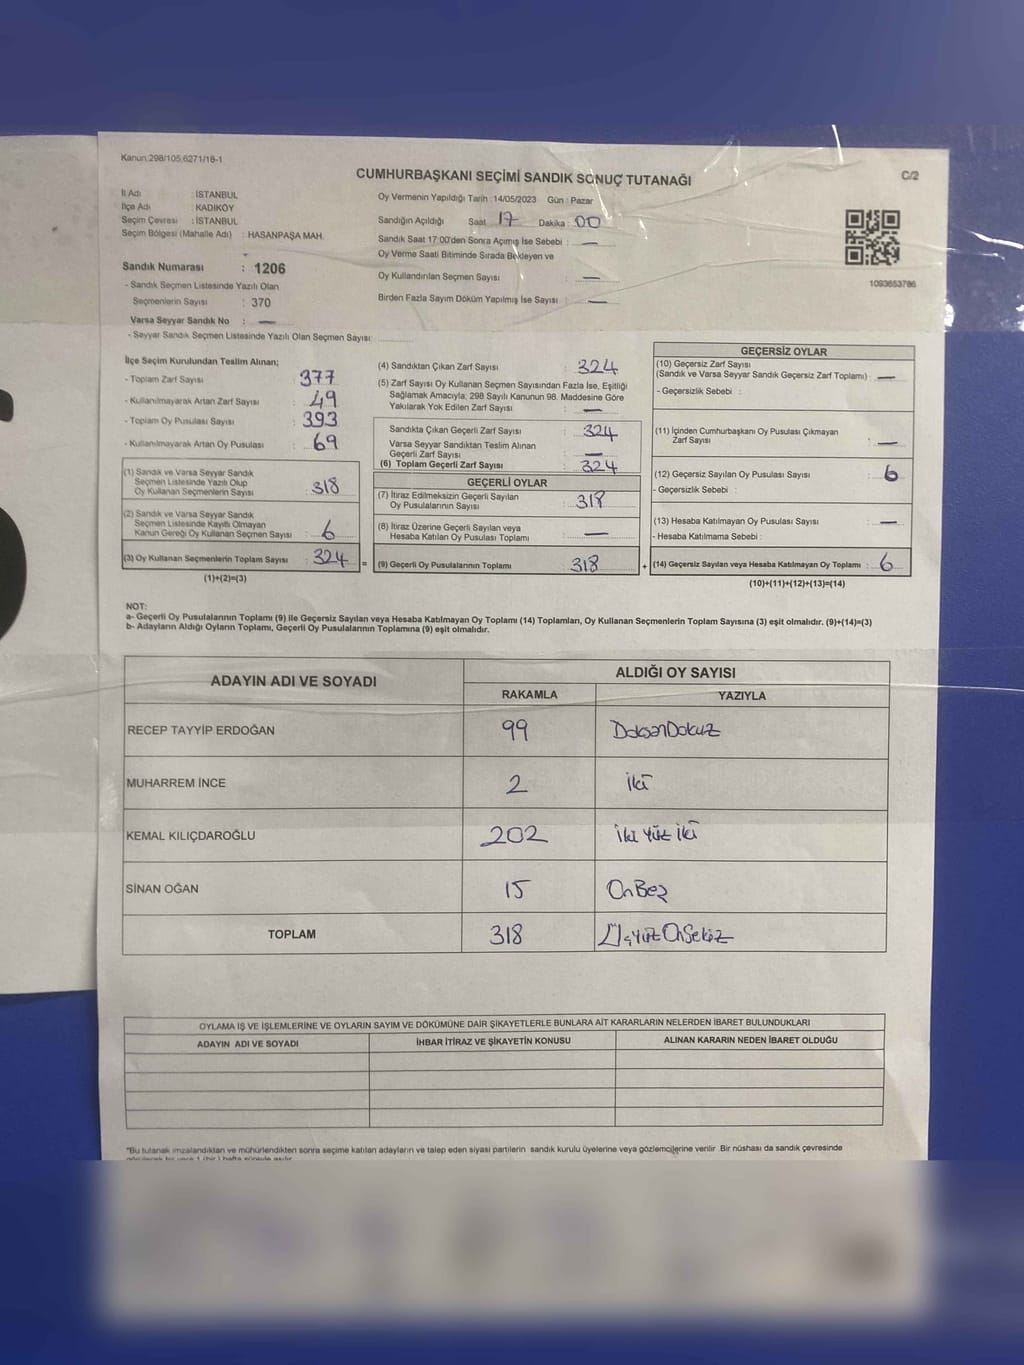 Kanun:298/105;6271/18-1
CUMHURBAŞKANI SEÇİMİ SANDIK SONUÇ TUTANAĞI
C/2
İl Adı : İSTANBUL
İlçe Adı : KADIKÖY
Seçim Çevresi : İSTANBUL
Seçim Bölgesi (Mahalle Adı) : HASANPAŞA MAH.
Sandık Numarası : 1206
- Sandık Seçmen Listesinde Yazılı Olan
Seçmenlerin Sayısı : 370
Varsa Seyyar Sandık No : —
- Seyyar Sandık Seçmen Listesinde Yazılı Olan Seçmen Sayısı:
Oy Vermenin Yapıldığı Tarih :14/05/2023 Gün : Pazar
Sandığın Açıldığı Saat : 17 Dakika : 00
Sandık Saat 17:00'den Sonra Açımış İse Sebebi : —
Oy Verme Saati Bitiminde Sırada Bekleyen ve
Oy Kullandırılan Seçmen Sayısı : —
Birden Fazla Sayım Döküm Yapılmış İse Sayısı : —
1093653786
İlçe Seçim Kurulundan Teslim Alınan;
- Toplam Zarf Sayısı : 377
- Kullanılmayarak Artan Zarf Sayısı : 49
- Toplam Oy Pusulası Sayısı : 393
- Kullanılmayarak Artan Oy Pusulası : 69
(1) Sandık ve Varsa Seyyar Sandık
Seçmen Listesinde Yazılı Olup
Oy Kullanan Seçmenlerin Sayısı : 318
(2) Sandık ve Varsa Seyyar Sandık
Seçmen Listesinde Kayıtlı Olmayan
Kanun Gereği Oy Kullanan Seçmen Sayısı : 6
(3) Oy Kullanan Seçmenlerin Toplam Sayısı : 324
(1)+(2)=(3)
(4) Sandıktan Çıkan Zarf Sayısı : 324
(5) Zarf Sayısı Oy Kullanan Seçmen Sayısından Fazla İse, Eşitliği
Sağlamak Amacıyla; 298 Sayılı Kanunun 98. Maddesine Göre
Yakılarak Yok Edilen Zarf Sayısı : —
Sandıkta Çıkan Geçerli Zarf Sayısı : 324
Varsa Seyyar Sandıktan Teslim Alınan
Geçerli Zarf Sayısı : —
(6) Toplam Geçerli Zarf Sayısı : 324
GEÇERLİ OYLAR
(7) İtiraz Edilmeksizin Geçerli Sayılan
Oy Pusulalarının Sayısı : 318
(8) İtiraz Üzerine Geçerli Sayılan veya
Hesaba Katılan Oy Pusulası Toplamı : —
= (9) Geçerli Oy Pusulalarının Toplamı : 318
GEÇERSİZ OYLAR
(10) Geçersiz Zarf Sayısı
(Sandık ve Varsa Seyyar Sandık Geçersiz Zarf Toplamı) : —
- Geçersizlik Sebebi :
(11) İçinden Cumhurbaşkanı Oy Pusulası Çıkmayan
Zarf Sayısı : —
(12) Geçersiz Sayılan Oy Pusulası Sayısı : 6
- Geçersizlik Sebebi :
(13) Hesaba Katılmayan Oy Pusulası Sayısı : —
- Hesaba Katılmama Sebebi :
+ (14) Geçersiz Sayılan veya Hesaba Katılmayan Oy Toplamı : 6
(10)+(11)+(12)+(13)=(14)
NOT:
a- Geçerli Oy Pusulalarının Toplamı (9) ile Geçersiz Sayılan veya Hesaba Katılmayan Oy Toplamı (14) Toplamları, Oy Kullanan Seçmenlerin Toplam Sayısına (3) eşit olmalıdır. (9)+(14)=(3)
b- Adayların Aldığı Oyların Toplamı, Geçerli Oy Pusulalarının Toplamına (9) eşit olmalıdır.
ADAYIN ADI VE SOYADI
ALDIĞI OY SAYISI
RAKAMLA YAZIYLA
RECEP TAYYİP ERDOĞAN 99 DoksanDokuz
MUHARREM İNCE 2 İki
KEMAL KILIÇDAROĞLU 202 İki Yüz İki
SİNAN OĞAN 15 OnBeş
TOPLAM 318 ÜçYüz OnSekiz
OYLAMA İŞ VE İŞLEMLERİNE VE OYLARIN SAYIM VE DÖKÜMÜNE DAİR ŞİKAYETLERLE BUNLARA AİT KARARLARIN NELERDEN İBARET BULUNDUKLARI
ADAYIN ADI VE SOYADI İHBAR İTİRAZ VE ŞİKAYETİN KONUSU ALINAN KARARIN NEDEN İBARET OLDUĞU
*Bu tutanak imzalandıktan ve mühürlendikten sonra seçime katılan adayların ve talep eden siyasi partilerin sandık kurulu üyelerine veya gözlemcilerine verilir. Bir nüshası da sandık çevresinde